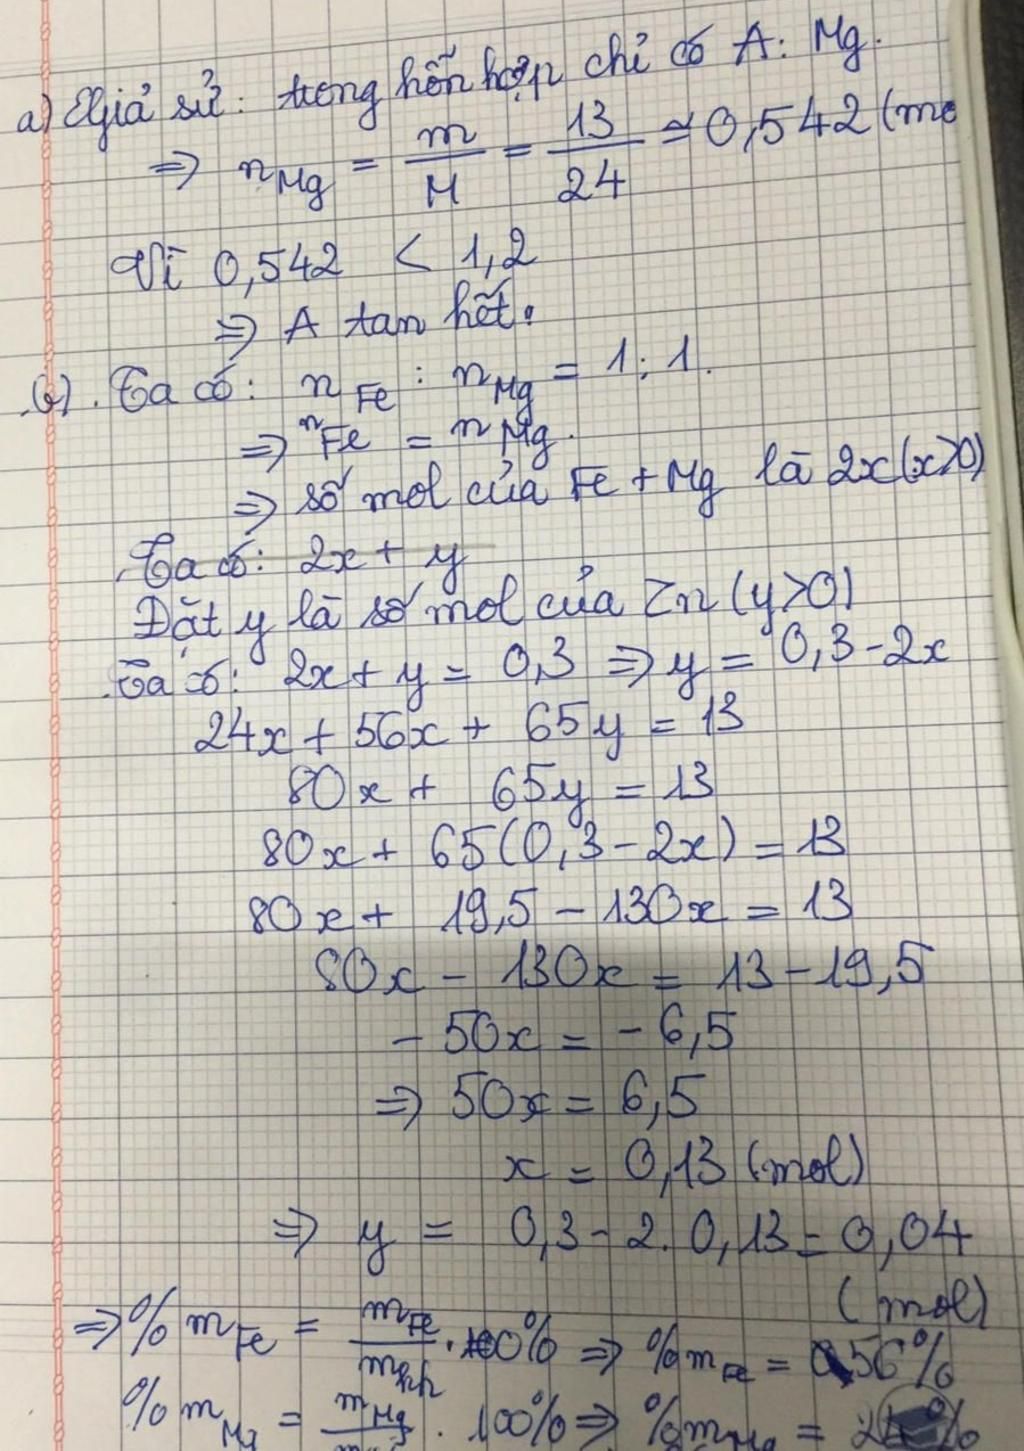 a) Giả sử: trong hỗn hợp chỉ có A: Mg.
⇒ nMg = m/M = 13/24 ≃ 0,542 (mo
Vì 0,542 < 1,2
⇒ A tan hết.
b). Ta có: nFe : nMg = 1:1.
⇒ nFe = nMg.
⇒ số mol của Fe + Mg là 2x (x>0)
Ta có: 2x + y
Đặt y là số mol của Zn (y>0)
Ta có: 2x + y = 0,3 ⇒ y = 0,3-2x
24x + 56x + 65y = 13
80x + 65y = 13
80x + 65(0,3-2x) = 13
80x + 19,5 - 130x = 13
80x - 130x = 13-19,5
- 50x = - 6,5
⇒ 50x = 6,5
x = 0,13 (mol)
⇒ y = 0,3 - 2.0,13 = 0,04
(mol)
⇒ % mFe = mFe/mhh . 100% ⇒ %mFe = 56%
% mMg = mMg . 100% ⇒ %mMg =